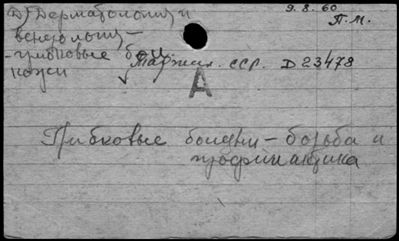 Д) Дерматология и
9. 8. 60
П.М.
венерология —
- грибковые бол.
кожи
✓ Таджик. ССР. D 23478
А
Грибковые болезни – борьба и
профилактика